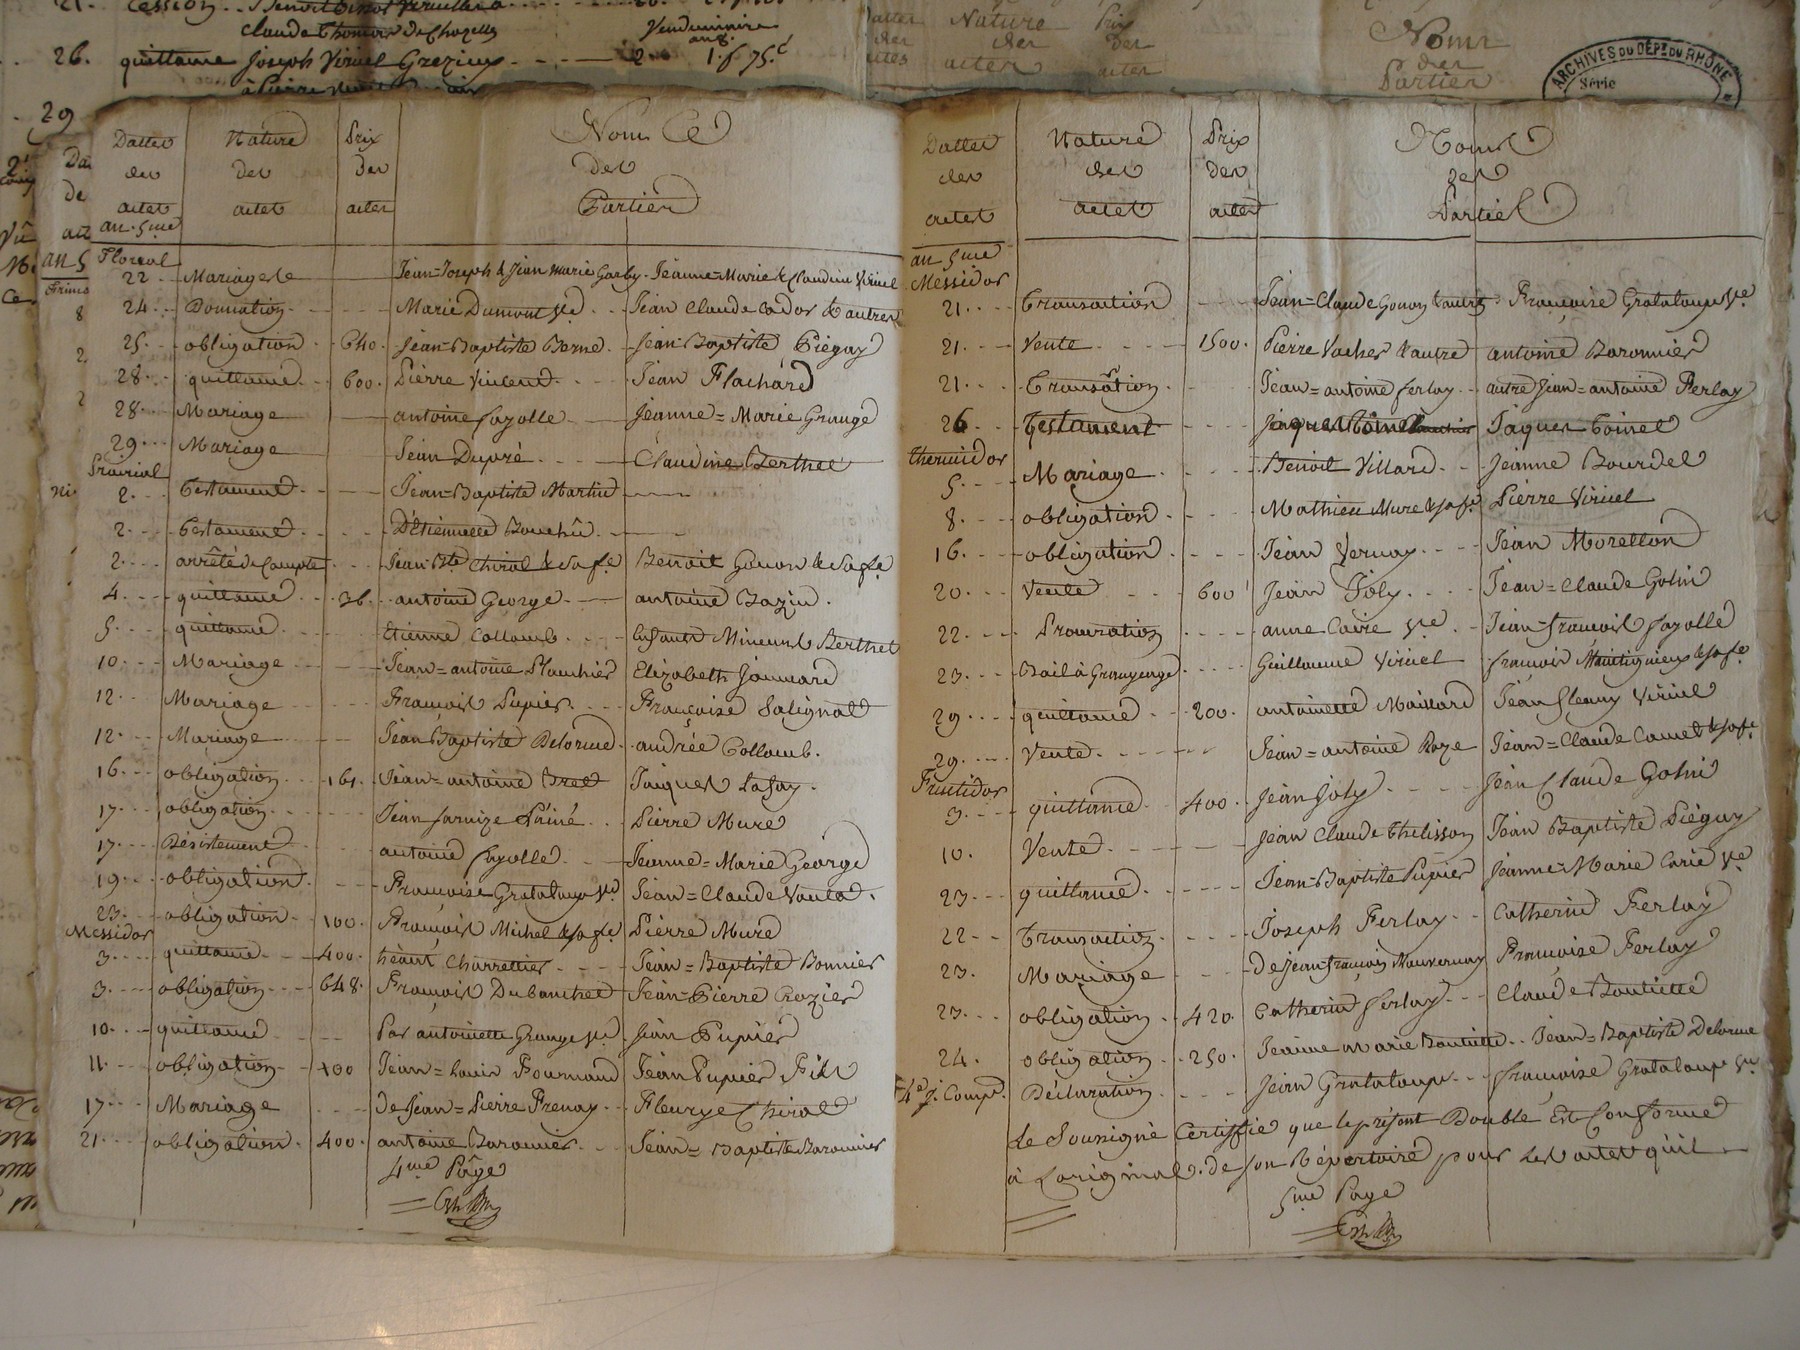 26. quittance Joseph Viricel Grezieu 2. 1.f 75.c
Vendemiaire
an 8.
29
Nature Prix
der der der
actes acter
Noms
der
Partier
ARCHIVES DU DÉPT DU RHÔNE
Série
Dattes Nature Prix Noms
des des des des
actes actes actes Parties
an 5me
Floréal
22 Mariages Jean=Joseph & Jean Marie Garby Jeanne=Marie & Claudine Viricel
24 Donnation Marie Dumont Ve Jean Claude & autres
25 obligation 640. Jean=Baptiste Berne Jean=Baptiste Piégay
28 quittance 600. Pierre Vincent Jean Flachard
28 Mariage antoine fayolle Jeanne=Marie Grange
29 Mariage Jean Dupré Claudine Berthet
Prairial
2 Testament Jean=Baptiste Martin
2 Testament D'Etiennette
2 arrêté de Compte Jean Bte Chirat & sa fe Benoit Gouon & sa fe
4 quittance 36. antoine George antoine Bazin.
5 quittance Etienne Collomb Enfants Mineurs Berthet
10 Mariage Jean=antoine Plauchier Elizabeth Joannard
12 Mariage François Pupier Françoise Salignat
12 Mariage Jean Baptiste Delorme andrée Collomb.
16 obligation 161. Jean=antoine Jacques Lafay.
17 obligation Jean L'ainé Pierre Mure
17 Désistement antoine fayolle Jeanne=Marie George
19 obligation Françoise Grataloup Ve Jean=Claude
23 obligation 100. François Michel & sa fe Pierre Mure
Messidor
3 quittance 400. Charrettier Jean=Baptiste Bonnier
3 obligation 648. François Dubanchet Jean=Pierre Crozier
10 quittance Par antoinette Grange Ve Jean Pupier
11 obligation 400 Jean=Louis Fournand Jean Pupier Fils
17 Mariage de Jean=Pierre Frenay Fleurye Chirat
21 obligation. 400. antoine Baronnier Jean=Baptiste Baronnier
4me Page
Dattes Nature Prix Noms
des des des des
actes actes actes Parties
an 5me
Messidor
21 Transaction Jean=Claude Gouon & autres Françoise Grataloup Ve
21 Vente 1500. Pierre Vacher & autre antoine Baronnier
21 Transaction Jean=antoine ferlay autre Jean=antoine Ferlay
26 Testament Jaques Toinet
thermidor
5 Mariage Benoit Villard Jeanne Bourdel
8 obligation Mathieu Mure & sa fe Pierre Viricel
16 obligation Jean Vernay Jean Morellon
20 Vente 600 Jean Joly Jean=Claude Golin
22 Procuration anne Caire Ve Jean=françois fayolle
23 Bail à Grangeage Guillaume Viricel françois & sa fe
29 quittance 200. antoinette Maillard Jean fleury Viricel
29 Vente Jean=antoine Roze Jean=Claude & sa fe
Fructidor
3 quittance 400. Jean Joly Jean Claude Golin
10. Vente Jean Claude Thelisson Jean Baptiste Piégay
23 quittance Jean=Baptiste Pupier Jeanne=Marie Ve
22 Transaction Joseph Ferlay Catherine Ferlay
23. Mariage de Jean=françois Mauvernay Françoise Ferlay
23 obligation 420. Catherine ferlay Claude Boutiette
24. obligation 250. Jeanne Marie Boutiette Jean=Baptiste Delorme
4e j. Compre. Déclaration Jean Grataloup françoise Grataloup Ve
Le Soussigné Certiffie que le présent Double Est Conforme
à L'original de son Répertoire pour les actes qu'il
5me Page